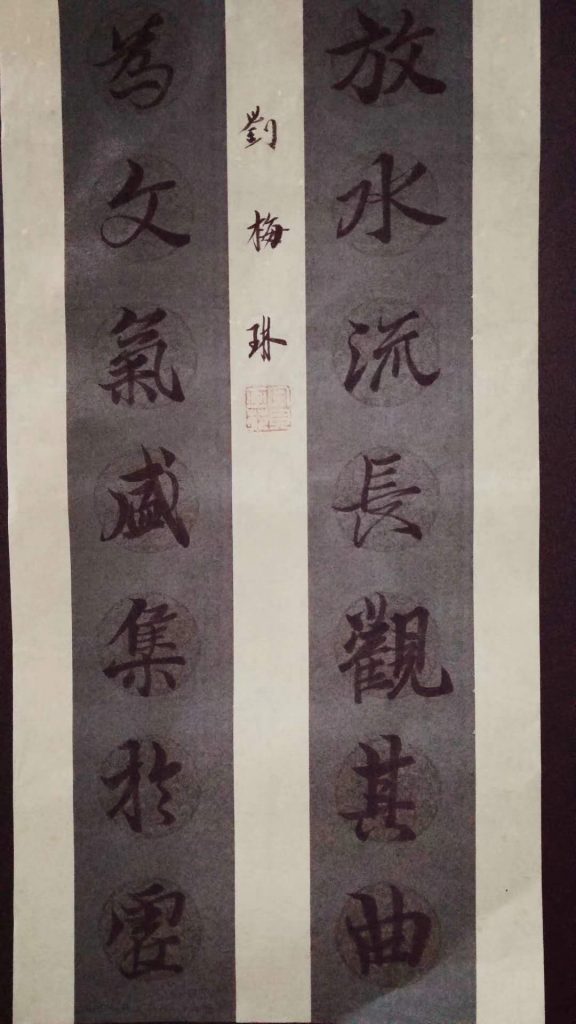 放水流長觀其曲
為文氣盛集於虛
劉梅琳